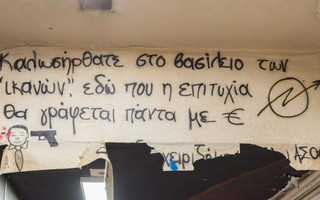 Καλωσήρθατε στο βασίλειο των
"ικανών", εδώ που η επιτυχία
θα γράφεται πάντα με €